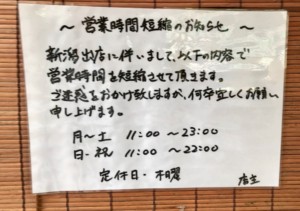 ～営業時間短縮のお知らせ～
新潟出店に伴いまして、以下の内容で
営業時間を短縮させて頂きます。
ご迷惑をおかけ致しますが、何卒宜しくお願い
申し上げます。
月～土 11:00 ～23:00
日・祝 11:00 ～22:00
定休日・木曜
店主